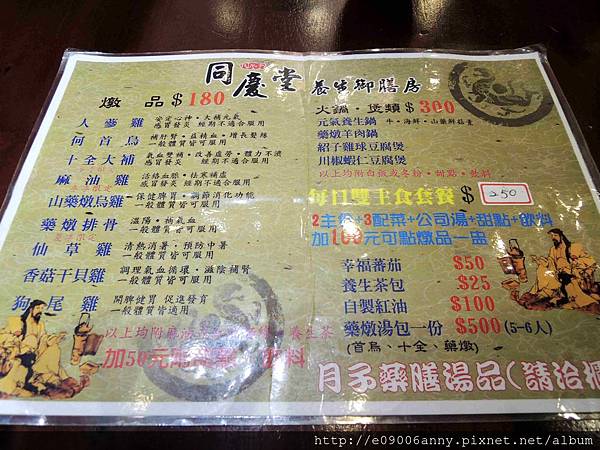 同慶堂 養生御膳房
燉品 $180
人蔘雞 安定心神·大補元氣
感冒發炎 經期不適合服用
何首烏 補肝腎·益精血·增長髮絲
一般體質皆可服用
十全大補 氣血雙補·改善虛勞·體力不濟
感冒發炎 經期不適合服用
麻油雞 活絡血脈·祛寒補虛
感冒發炎 經期不適合服用
山藥燉烏雞 保健脾胃·調節消化功能
一般體質皆可服用
藥燉排骨 溫陽·補氣血
一般體質皆可服用
仙草雞 清熱消暑·預防中暑
一般體質皆可服用
香菇干貝雞 調理氣血循環·滋陰補腎
一般體質皆可服用
狗尾雞 開脾健胃 促進發育
一般體質皆適用
以上均附麻 養生茶
加50元 飲料
火鍋·煲類 $300
元氣養生鍋 牛·海鮮·山藥鮮菇素
藥燉羊肉鍋
紹子雞球豆腐煲
川椒蝦仁豆腐煲
以上均附白飯或冬粉·甜點·飲料
每日雙主食套餐 $ 250
2主份+3配菜+公司湯+甜點+飲料
加100元可點燉品一盅
幸福蕃茄 $50
養生茶包 $25
自製紅油 $100
藥燉湯包一份 $500(5-6人)
(首烏、十全、藥燉)
月子藥膳湯品(請洽櫃
http://e09006anny.pixnet.net/album